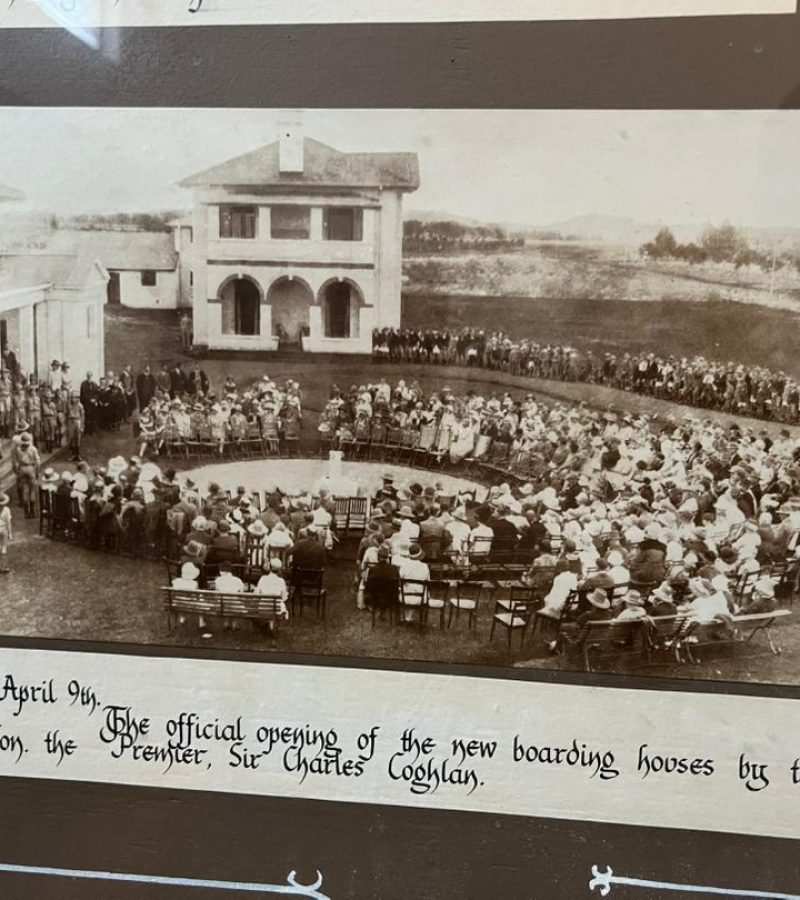 April 9th.
The official opening of the new boarding houses by t
on. the Premier, Sir Charles Coghlan.